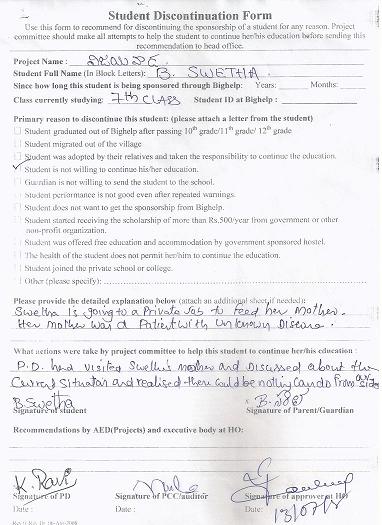 Student Discontinuation Form
Use this form to recommend for discontinuing the sponsorship of a student for any reason. Project
committee should make all attempts to help the student to continue her/his education before sending this
recommendation to head office.
Project Name :
Student Full Name (In Block Letters): B. SWETHA.
Since how long this student is being sponsored through Bighelp: Years: Months:
Class currently studying: 7th CLASS Student ID at Bighelp :
Primary reason to discontinue this student: (please attach a letter from the student)
Student graduated out of Bighelp after passing 10th grade/11th grade/ 12th grade
Student migrated out of the village
Student was adopted by their relatives and taken the responsibility to continue the education.
Student is not willing to continue his/her education.
Guardian is not willing to send the student to the school.
Student performance is not good even after repeated warnings.
Student does not want to get the sponsorship from Bighelp.
Student started receiving the scholarship of more than Rs.500/year from government or other
non-profit organization.
Student was offered free education and accommodation by government sponsored hostel.
The health of the student does not permit her/him to continue the education.
Student joined the private school or college.
Other (please specify):
Please provide the detailed explanation below (attach an additional sheet if needed):
Swetha is going to a Private Job to feed her Mother.
Her mother was a Patient with Unknown Disease.
What actions were take by project committee to help this student to continue her/his education :
P.D. had visited Swetha's mother and Discussed about the
Current Situation and realised there could be nothing can do from our side
B. Swetha
Signature of student Signature of Parent/Guardian
Recommendations by AED(Projects) and executive body at HO:
K. Ravi
Signature of PD Signature of PCC/auditor Signature of approver at HO
Date : Date : Date: